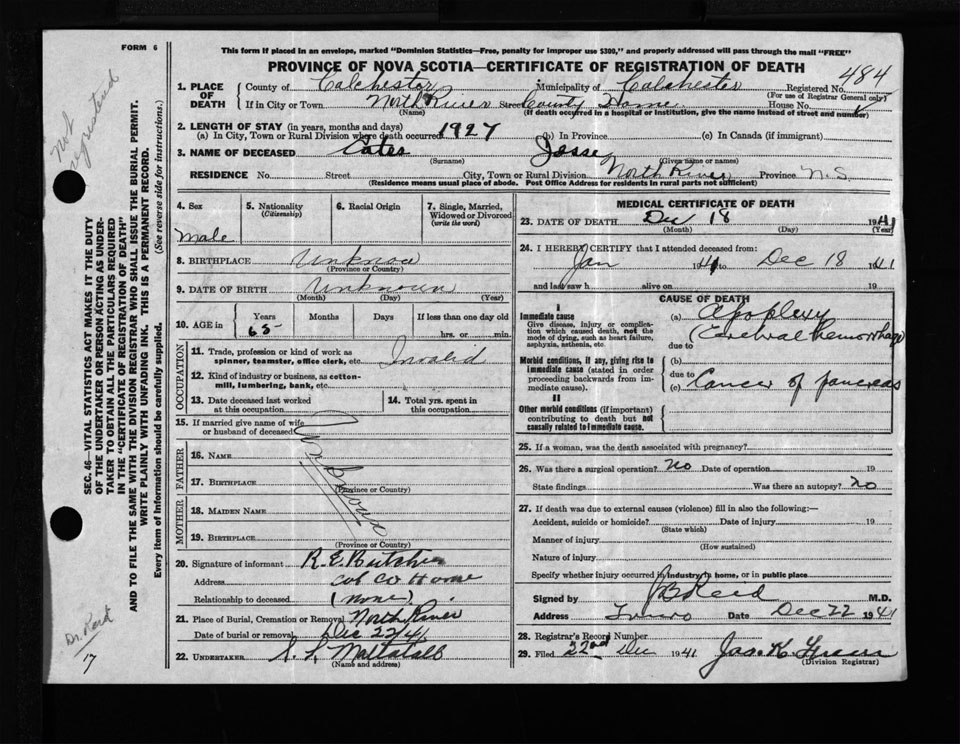 FORM 6
This form if placed in an envelope, marked "Dominion Statistics—Free, penalty for improper use $300," and properly addressed will pass through the mail "FREE"
PROVINCE OF NOVA SCOTIA—CERTIFICATE OF REGISTRATION OF DEATH
484
1. PLACE OF DEATH
County of Colchester Municipality of Colchester Registered No.
(For use of Registrar General only)
If in City or Town North River Street County Home House No.
(Name) (If death occurred in a hospital or institution, give the name instead of street and number)
2. LENGTH OF STAY (in years, months and days)
(a) In City, Town or Rural Division where death occurred 1927 (b) In Province (c) In Canada (if immigrant)
3. NAME OF DECEASED Cates Jesse
(Surname) (Given name or names)
RESIDENCE No. Street City, Town or Rural Division North River Province N.S.
(Residence means usual place of abode. Post Office Address for residents in rural parts not sufficient)
4. Sex 5. Nationality 6. Racial Origin 7. Single, Married, Widowed or Divorced
(Citizenship) (write the word)
Male
8. BIRTHPLACE Unknow
(Province or Country)
9. DATE OF BIRTH Unknown
(Month) (Day) (Year)
10. AGE in Years Months Days If less than one day old
65 hrs. or min.
OCCUPATION
11. Trade, profession or kind of work as spinner, teamster, office clerk, etc. Invalid
12. Kind of industry or business, as cotton-mill, lumbering, bank, etc.
13. Date deceased last worked at this occupation
14. Total yrs. spent in this occupation
15. If married give name of wife or husband of deceased
FATHER
16. NAME
17. BIRTHPLACE
(Province or Country)
MOTHER
18. MAIDEN NAME
19. BIRTHPLACE
(Province or Country)
20. Signature of informant R.E.
Address Col Co Home
Relationship to deceased (none)
21. Place of Burial, Cremation or Removal North River
Date of burial or removal Dec 22/41
22. UNDERTAKER
(Name and address)
MEDICAL CERTIFICATE OF DEATH
23. DATE OF DEATH Dec 18 1941
(Month) (Day) (Year)
24. I HEREBY CERTIFY that I attended deceased from:
Jan 1941 to Dec 18 1941
and last saw h alive on 19
CAUSE OF DEATH
I
Immediate cause
Give disease, injury or complication which caused death, not the mode of dying, such as heart failure, asphyxia, asthenia, etc.
(a) Apoplexy
(Cerebral hemorrhage)
due to
Morbid conditions, if any, giving rise to immediate cause (stated in order proceeding backwards from immediate cause).
(b)
due to
(c) Cancer of pancreas
II
Other morbid conditions (if important) contributing to death but not causally related to immediate cause.
25. If a woman, was the death associated with pregnancy?
26. Was there a surgical operation? No Date of operation 19
State findings Was there an autopsy? no
27. If death was due to external causes (violence) fill in also the following:—
Accident, suicide or homicide? Date of injury 19
(State which)
Manner of injury
(How sustained)
Nature of injury
Specify whether injury occurred in industry, in home, or in public place
Signed by JB Reid M.D.
Address Truro Date Dec 22 1941
28. Registrar's Record Number
29. Filed 22nd Dec 1941 Jas. K.
(Division Registrar)
SEC. 46—VITAL STATISTICS ACT MAKES IT THE DUTY OF THE UNDERTAKER OR PERSON ACTING AS UNDERTAKER TO OBTAIN ALL THE PARTICULARS REQUIRED IN THE "CERTIFICATE OF REGISTRATION OF DEATH"
AND TO FILE THE SAME WITH THE DIVISION REGISTRAR WHO SHALL ISSUE THE BURIAL PERMIT.
WRITE PLAINLY WITH UNFADING INK. THIS IS A PERMANENT RECORD.
Every item of information should be carefully supplied. (See reverse side for instructions.)
Not registered
Dr. Reid
17
Unknown